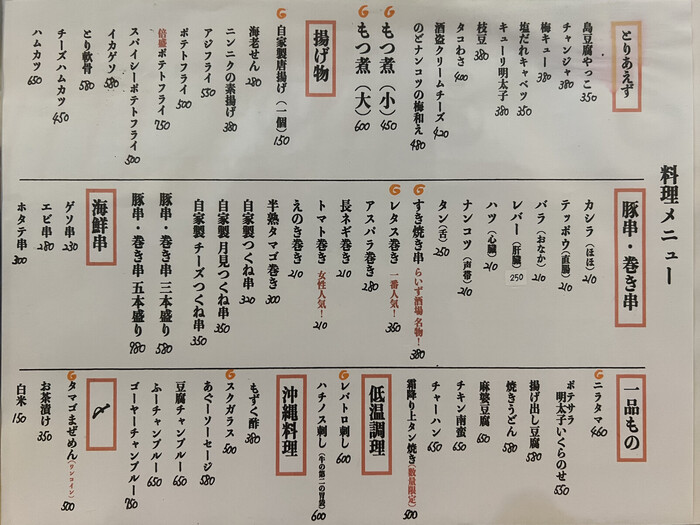 料理メニュー
とりあえず
島豆腐やっこ 350
チャンジャ 380
梅キュー 380
塩だれキャベツ 350
キューリ明太子 380
枝豆 380
タコわさ 400
酒盗クリームチーズ 420
のどナンコツの梅和え 480
G もつ煮(小) 450
G もつ煮(大) 600
揚げ物
G 自家製唐揚げ(一個) 150
海老せん 280
ニンニクの素揚げ 380
アジフライ 550
ポテトフライ 500
倍盛ポテトフライ 750
スパイシーポテトフライ 500
イカゲソ 580
とり軟骨 580
チーズハムカツ 450
ハムカツ 650
豚串・巻き串
カシラ(ほほ) 210
テッポウ(直腸) 210
バラ(おなか) 210
レバー(肝臓) 250
ハツ(心臓) 210
ナンコツ(声帯) 210
タン(舌) 250
G すき焼き串 らいず酒場 名物! 380
G レタス巻き 一番人気! 350
アスパラ巻き 280
長ネギ巻き 210
トマト巻き 女性人気! 210
えのき巻き 210
半熟タマゴ巻き 300
自家製つくね串 320
自家製 月見つくね串 350
自家製 チーズつくね串 350
豚串・巻き串 三本盛り 580
豚串・巻き串 五本盛り 980
海鮮串
ゲソ串 230
エビ串 280
ホタテ串 300
一品もの
G ニラタマ 460
ポテサラ 明太子いくらのせ 550
揚げ出し豆腐 580
焼きうどん 580
麻婆豆腐 650
チキン南蛮 650
チャーハン 650
霜降り上タン焼き(数量限定) 500
低温調理
G レバトロ刺し 600
ハチノス刺し(牛の第二の胃袋) 600
沖縄料理
もずく酢 380
G スクガラス 500
あぐーソーセージ 580
豆腐チャンプルー 650
ふーチャンプルー 650
ゴーヤーチャンプルー 750
〆
G タマゴまぜめん(ワンコイン) 500
お茶漬け 350
白米 150